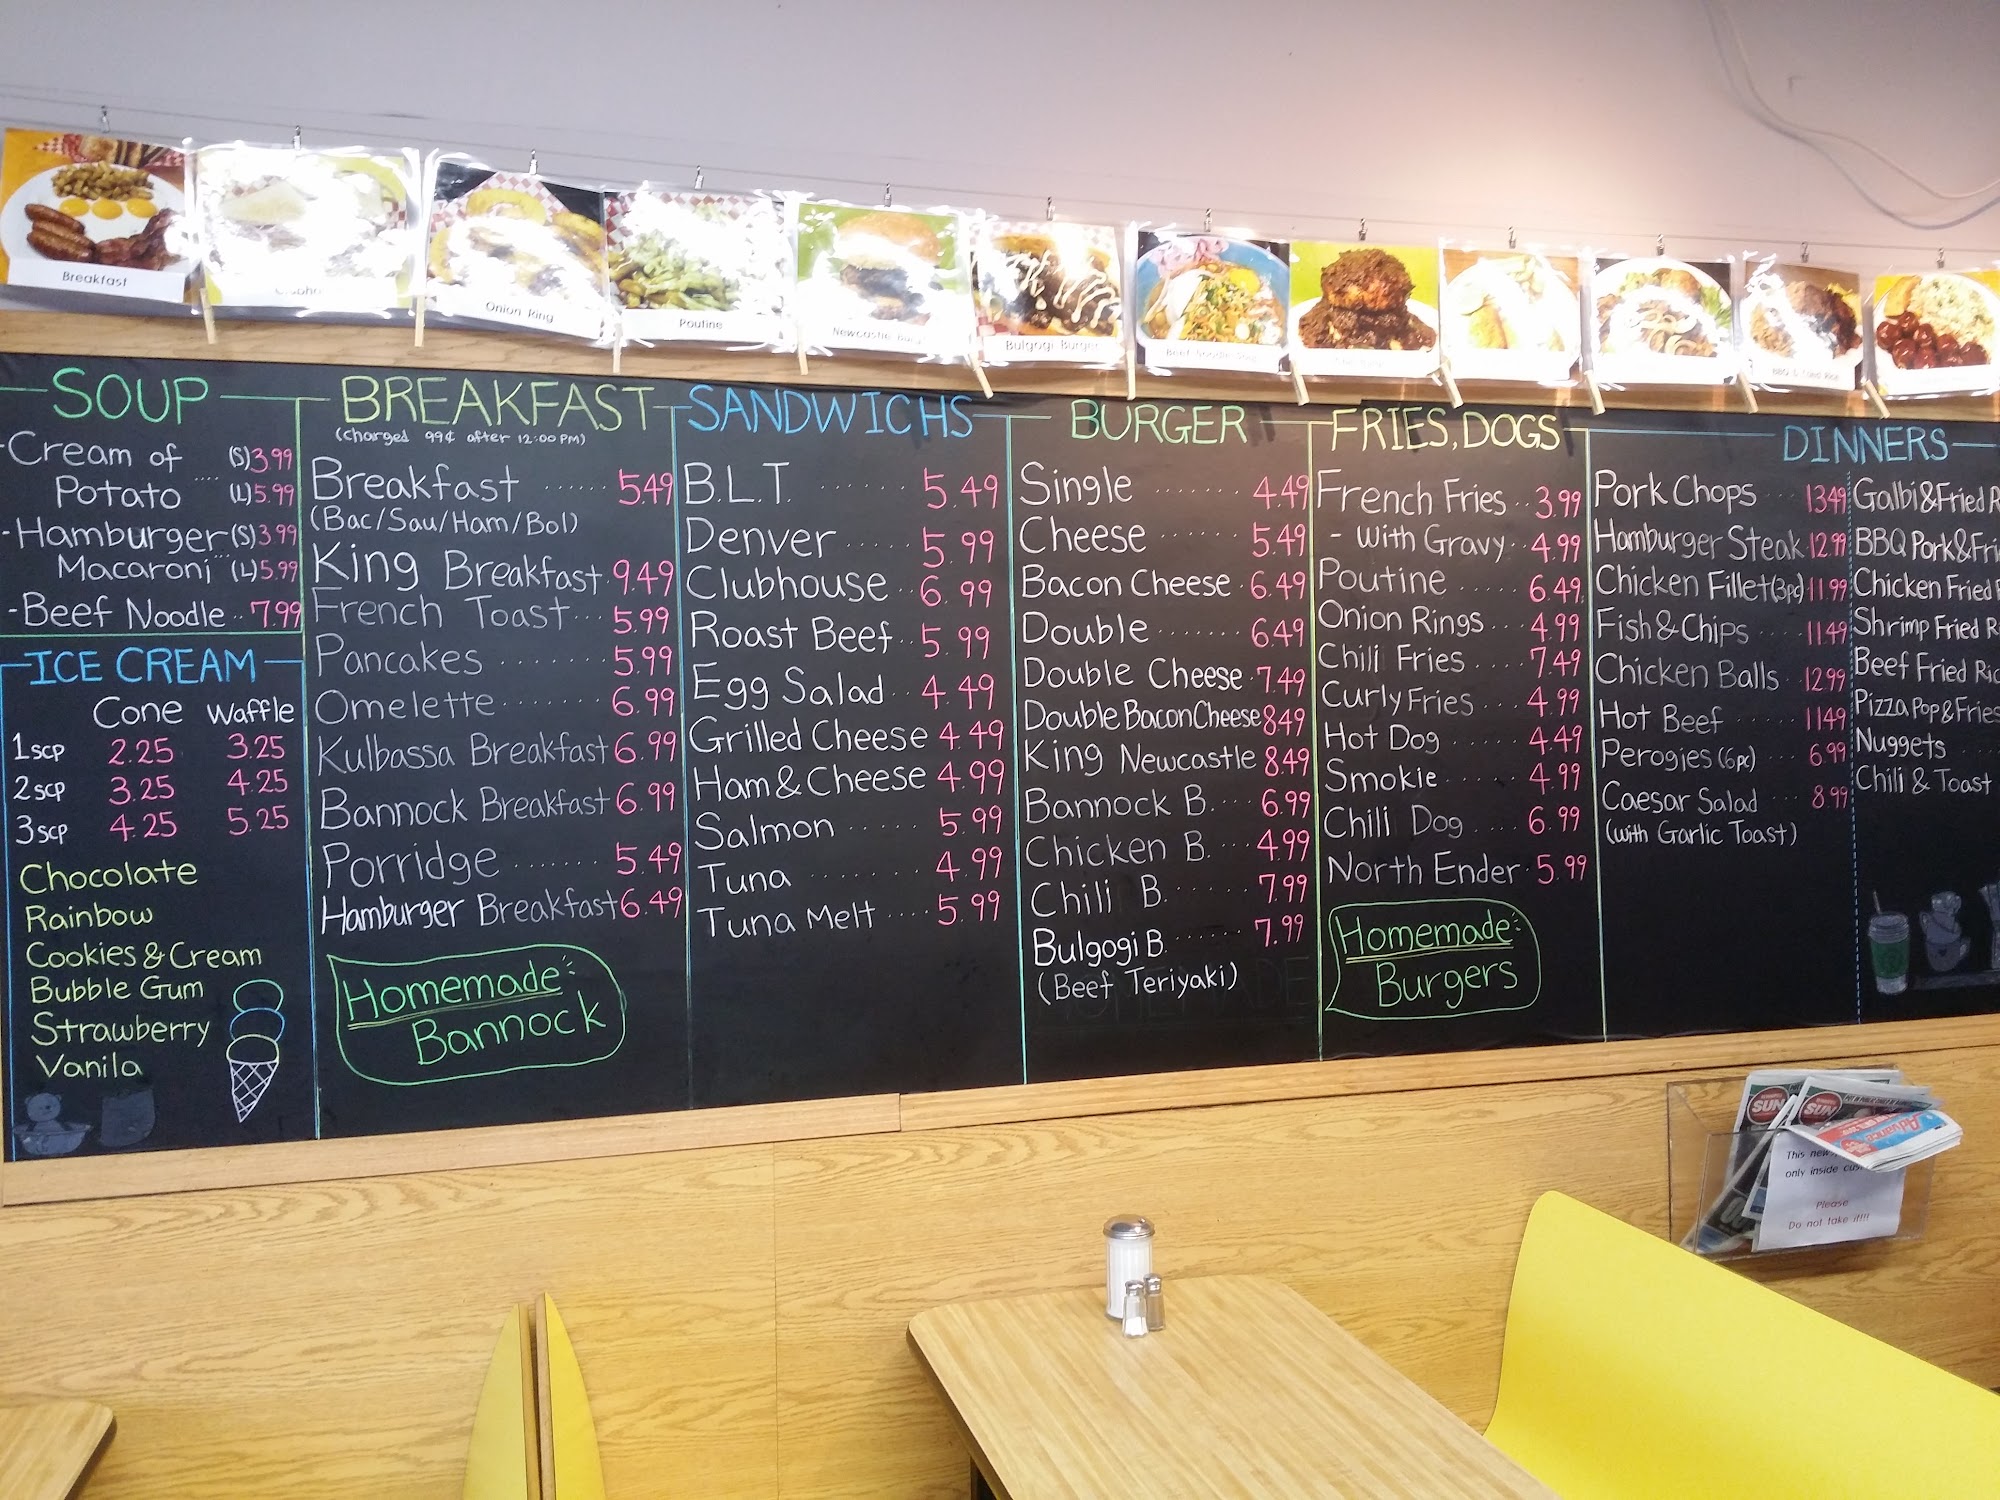 Breakfast
Onion Ring
Poutine
Newcastle
Bulgogi Burger
BBQ & Fried Rice
SOUP
-Cream of (S)3.99
Potato .... (L)5.99
-Hamburger (S)3.99
Macaroni ... (L)5.99
-Beef Noodle .. 7.99
ICE CREAM
Cone Waffle
1scp 2.25 3.25
2scp 3.25 4.25
3scp 4.25 5.25
Chocolate
Rainbow
Cookies & Cream
Bubble Gum
Strawberry
Vanila
BREAKFAST
(charged 99¢ after 12:00 PM)
Breakfast ...... 5.49
(Bac/Sau/Ham/Bol)
King Breakfast. 9.49
French Toast ... 5.99
Pancakes ....... 5.99
Omelette ....... 6.99
Kulbassa Breakfast 6.99
Bannock Breakfast 6.99
Porridge ....... 5.49
Hamburger Breakfast 6.49
Homemade
Bannock
SANDWICHS
B.L.T. ...... 5.49
Denver ..... 5.99
Clubhouse .. 6.99
Roast Beef .. 5.99
Egg Salad .. 4.49
Grilled Cheese 4.49
Ham & Cheese 4.99
Salmon ..... 5.99
Tuna ....... 4.99
Tuna Melt .... 5.99
BURGER
Single ....... 4.49
Cheese 5.49
Bacon Cheese . 6.49
Double ....... 6.49
Double Cheese . 7.49
Double Bacon Cheese 8.49
King Newcastle 8.49
Bannock B. ... 6.99
Chicken B. ... 4.99
Chili B. ...... 7.99
Bulgogi B. ...... 7.99
(Beef Teriyaki)
FRIES, DOGS
French Fries .. 3.99
- With Gravy .. 4.99
Poutine ..... 6.49
Onion Rings .... 4.99
Chili Fries .... 7.49
Curly Fries .... 4.99
Hot Dog ...... 4.49
Smokie ...... 4.99
Chili Dog .... 6.99
North Ender . 5.99
Homemade
Burgers
DINNERS
Pork Chops ... 13.49
Hamburger Steak. 12.99
Chicken Fillet(3pc) 11.99
Fish & Chips .... 11.49
Chicken Balls .. 12.99
Hot Beef ...... 11.49
Perogies (6pc) .... 6.99
Caesar Salad ... 8.99
(with Garlic Toast)
Galbi & Fried
BBQ Pork &
Chicken Fried
Shrimp Fried
Beef Fried
Pizza Pop & Fries
Nuggets
Chili & Toast
SUN
SUN
Advance
This
only inside
Please
Do not take it!!!